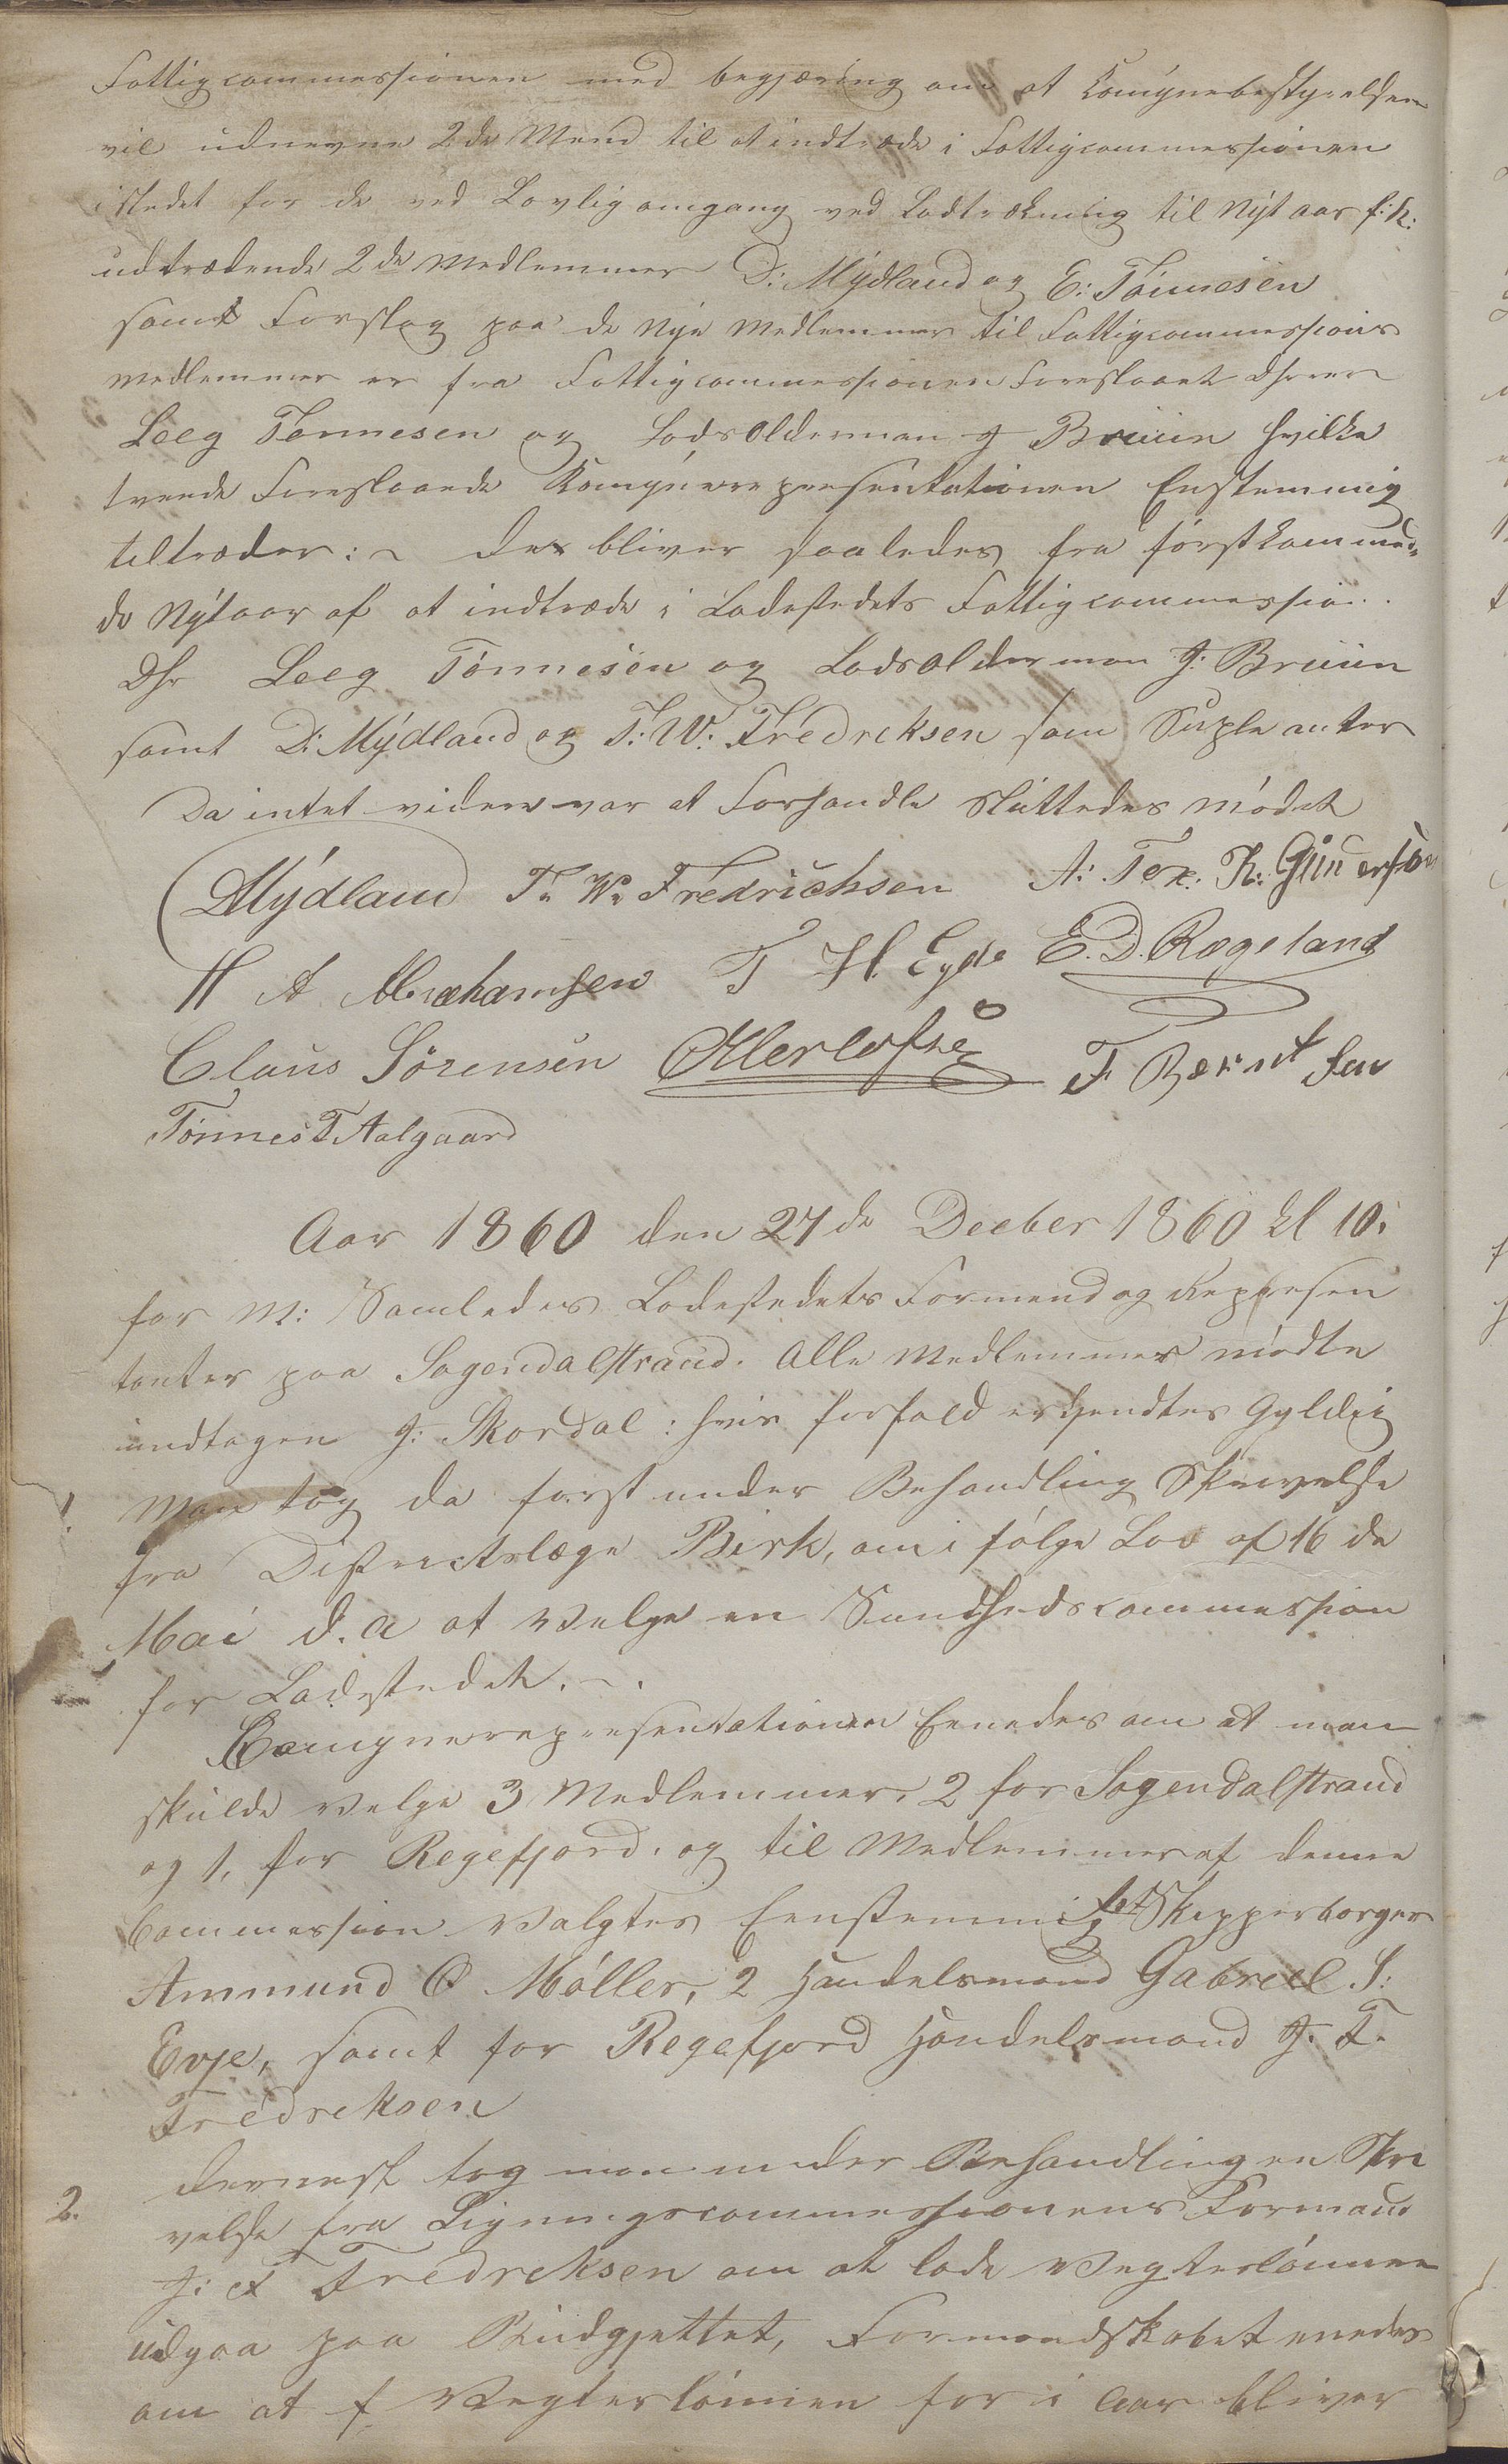 Fattigcommessionen med begjæring om at Komynebestyrelsen
vil udnevne 2de Mend til at indtræde i Fattigcommessionen
istedet for de ved Lovlig omgang ved Lodtrekning til Nýt aar f: k:
udtrædende 2de Medlemmer D: Mýdland og E: Tönnesen
samt Forslag paa de Nýe Medlemmer til Fattigcommessions
medlemmer er fra Fattigcommessionen Foreslaaet Dhrr
Leeg Tonnesen og Lodsolderman J Bruun hvilke
tvende Foreslaaede Komýnerepresentationen Enstemmig
tiltræder: ~ Der bliver saaledes fra förstkommend=
de Nýtaar af at indtræde i Ladestedets Fattigcommession.
Dhr Leeg Tönnesen og Lodsolderman J: Bruun
samt D: Mýdland og T: W: Fredreksen som Supleanter
Da intet videre var at Forhandle Sluttedes mödet
DMýdland T. W. Fredrichsen A: Tex. K: Gundersen
H A Abrahamsen T H. Eyde E. D. Rægeland
Claus Sörensen OHerlofsen F Berntsen
Tönnes T Aalgaard
Aar 1860 den 27de Deeber 1860 kl 10.
for M: Samledes Ladestedets Formend og Represen
tanter paa Sogendalstrand. Alle Medlemmer mödte
undtagen J: Skordal: hvis forfald erkjendtes Gyldig
1. Man tog da först under Behandling Skrivelse
fra Districtslæge Birk, om i fölge Lov af 16 de
Mai d. a at Velge en Sundhedscommession
for Ladestedet. ~.
Comynerepresentationen Enedes om at man
skulde Velge 3 Medlemmer, 2 for Sogendalstrand
og 1, for Regefjord. og til Medlemmer af denne
Commession Valgtes Eenstemmig 1st Skipperborger
Ammund O Möller, 2 Handelsmand Gabreel S:
Evje, samt for Regefjord Handelsmand J. F.
Fredreksen
2. Dernest tog man under Behandling en Skri
velse fra Ligningscommessionens Formand
J: F Fredreksen om at lade Vegterlönnen
udgaa paa Budgjettet, Formandskabet enedes
om at f Vegterlönnen for i Aar bliver